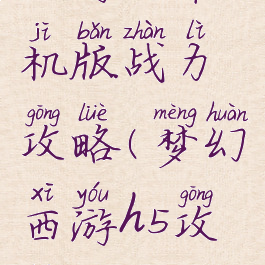 jī bǎn zhàn lì
机版战力
gōng lüè mèng huàn
攻略(梦幻
xī yóu gōng
西游h5攻